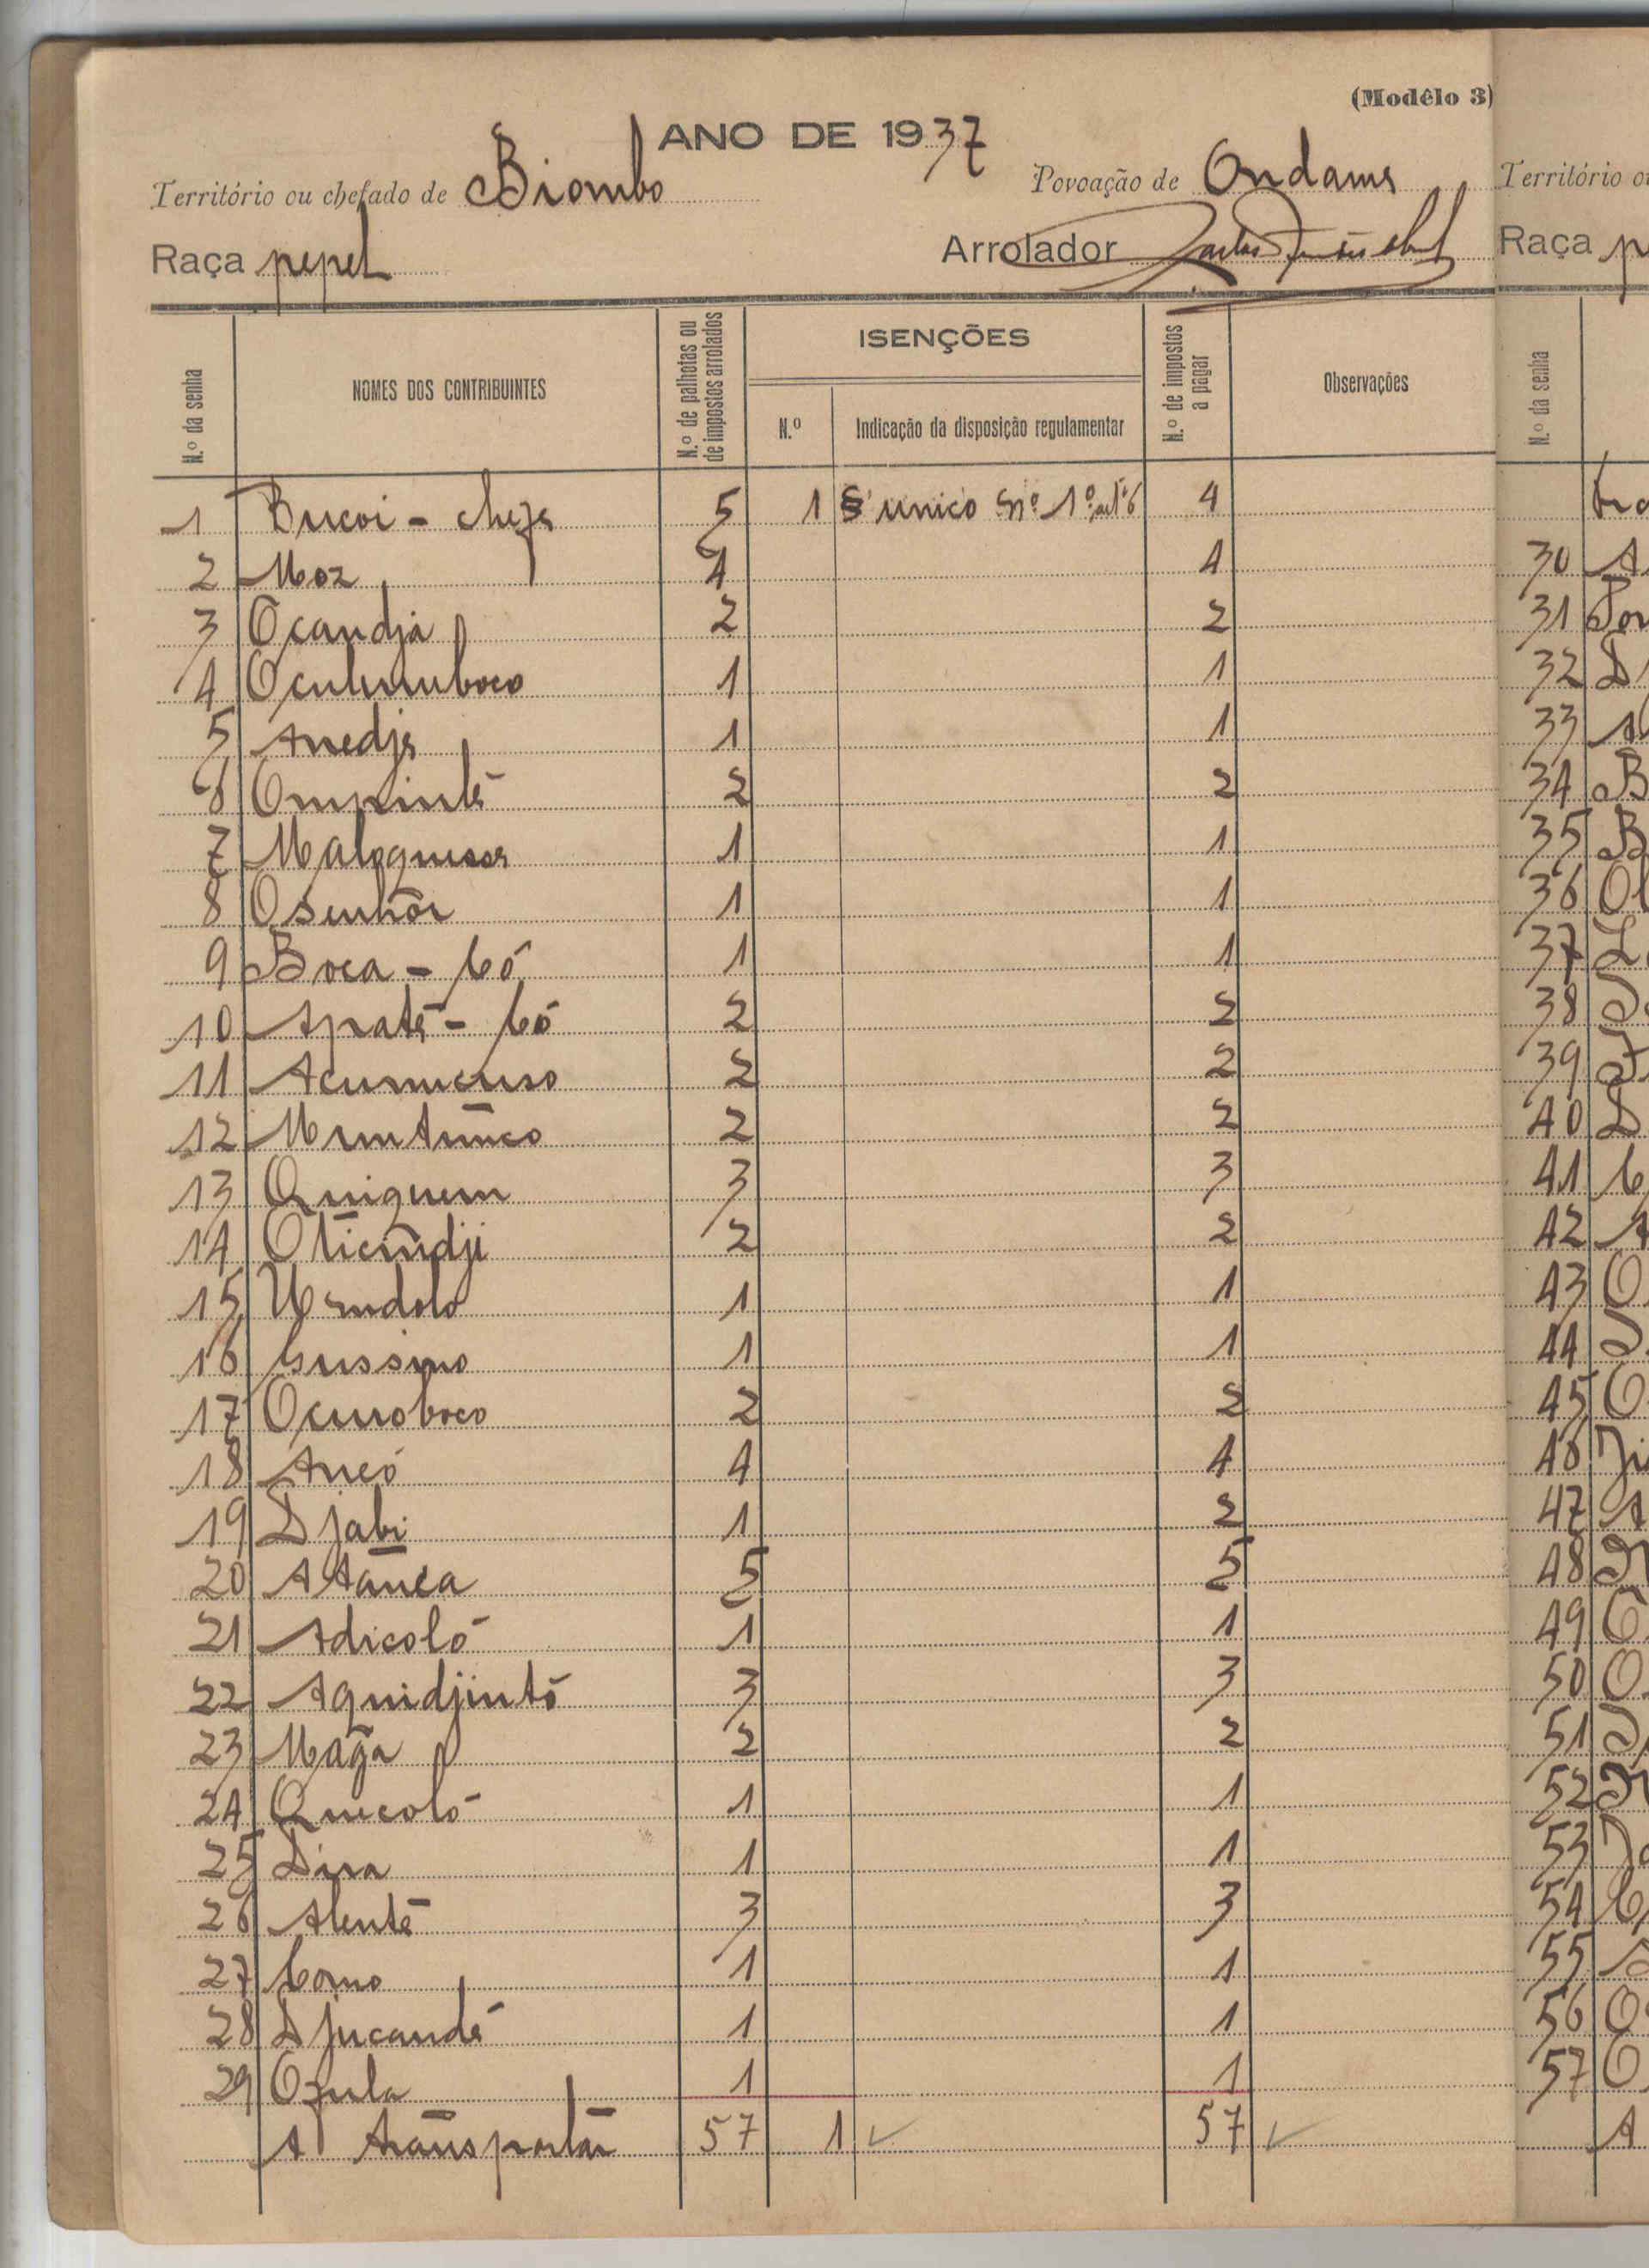 (Modêlo 3)
ANO DE 1937
Território ou chefado de Biombo Povoação de Ondame
Raça pepel Arrolador
N.º da senha NOMES DOS CONTRIBUINTES N.º de palhotas ou de impostos arrolados ISENÇÕES N.º Indicação da disposição regulamentar N.º de impostos a pagar Observações
1 Bucoi - chefe 5 1 § unico nº 1º artº 6 4
2 Moz 4 4
3 Ocandja 2 2
4 1 1
5 Anedje 1 1
6 Ompinté 2 2
7 1 1
8 Osenhôr 1 1
9 Boca - Có 1 1
10 Apaté - Có 2 2
11 2 2
12 2 2
13 Quiguem 3 3
14 Oticundji 2 2
15 1 1
16 1 1
17 Ocuroboco 2 2
18 Ancó 4 4
19 Djabi 1 2
20 Atanca 5 5
21 Adicoló 1 1
22 Aquidjintó 3 3
23 Maga 2 2
24 Quecoló 1 1
25 1 1
26 Alenté 3 3
27 Como 1 1
28 Djucandé 1 1
29 Opula 1 1
A transportar 57 1 57
Território o
Raça p
N.º da senha
30 A
31
32 D
33
34 B
35 B
36
37
38
39
40 D
41
42 A
43 O
44
45 O
46
47 A
48
49
50 O
51
52
53
54
55
56 O
57
A